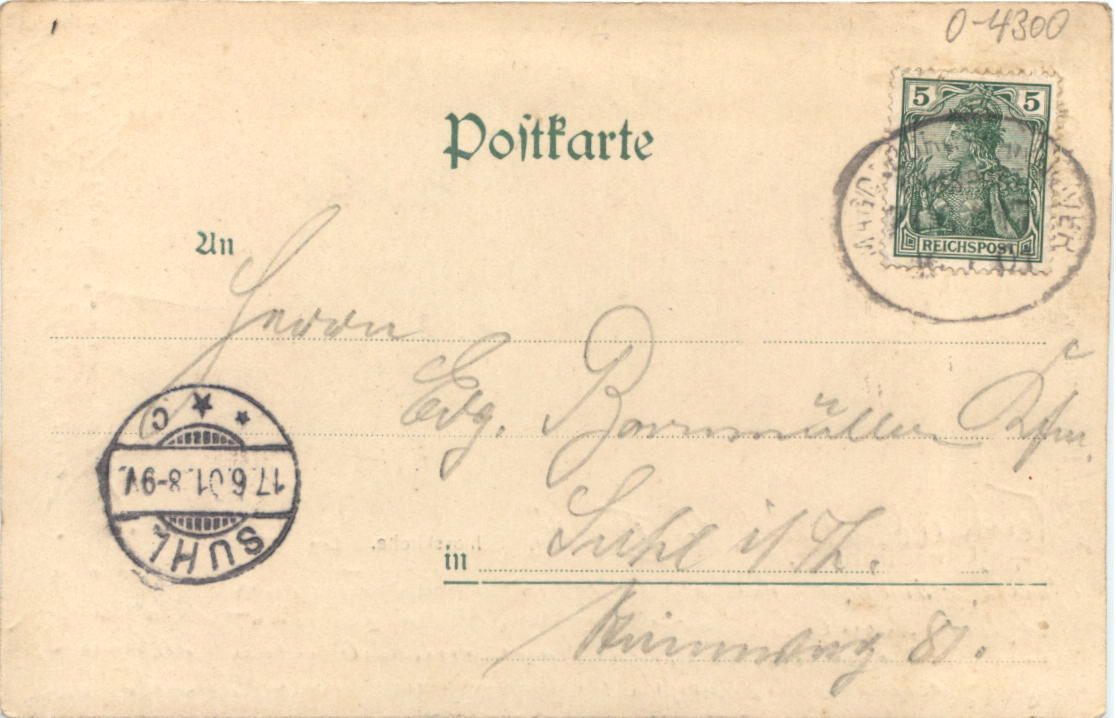 0-4300
Postkarte
5 5
REICHSPOST
An
Herrn
Edg. Bornmüller Kfm.
C
17.6.01.8-9V.
SUHL
in Suhl i/Th.
81.